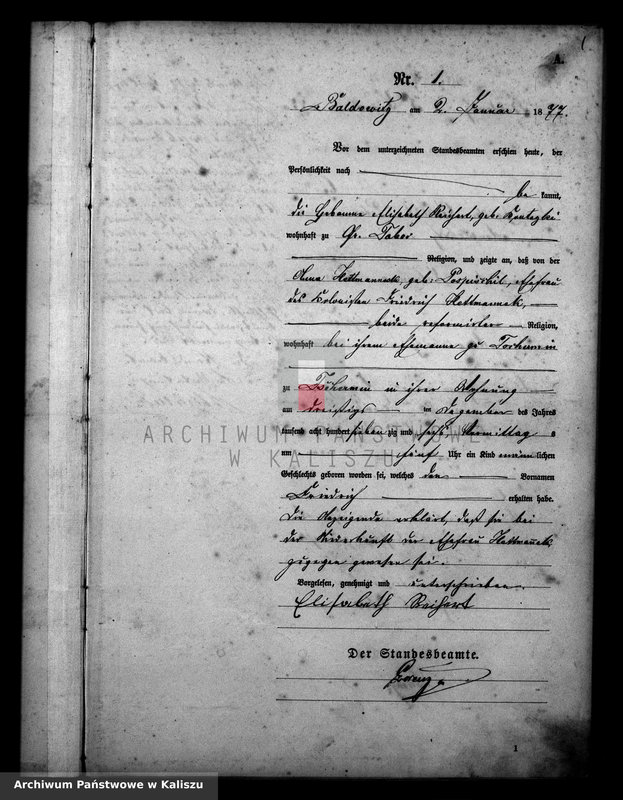 A.
Nr. 1.
Baldowitz am 2. Januar 1877.
Vor dem unterzeichneten Standesbeamten erschien heute, der
Persönlichkeit nach
be kannt,
die Hebamme Elisabeth Reichert, geb.
wohnhaft zu Gr. Tabor
Religion, und zeigte an, daß von der
Anna Hettmanneck, geb. Pospischil, Ehefrau
des Kolonisten Friedrich Hettmanneck,
beide reformirter Religion,
wohnhaft bei ihrem Ehemanne zu
zu in ihrer Wohnung
am dreißigs ten Dezember des Jahres
tausend acht hundert sieben zig und sechs Vormittags
um fünf Uhr ein Kind männlichen
Geschlechts geboren worden sei, welches den Vornamen
Friedrich erhalten habe.
Die Anzeigende erklärt, daß sie bei
der Niederkunft der Ehefrau Hettmanneck
zugegen gewesen sei.
Vorgelesen, genehmigt und unterschrieben
Elisabeth Reichert
Der Standesbeamte.
1
ARCHIWUM PAŃSTWOWE
W KALISZU
Archiwum Państwowe w Kaliszu